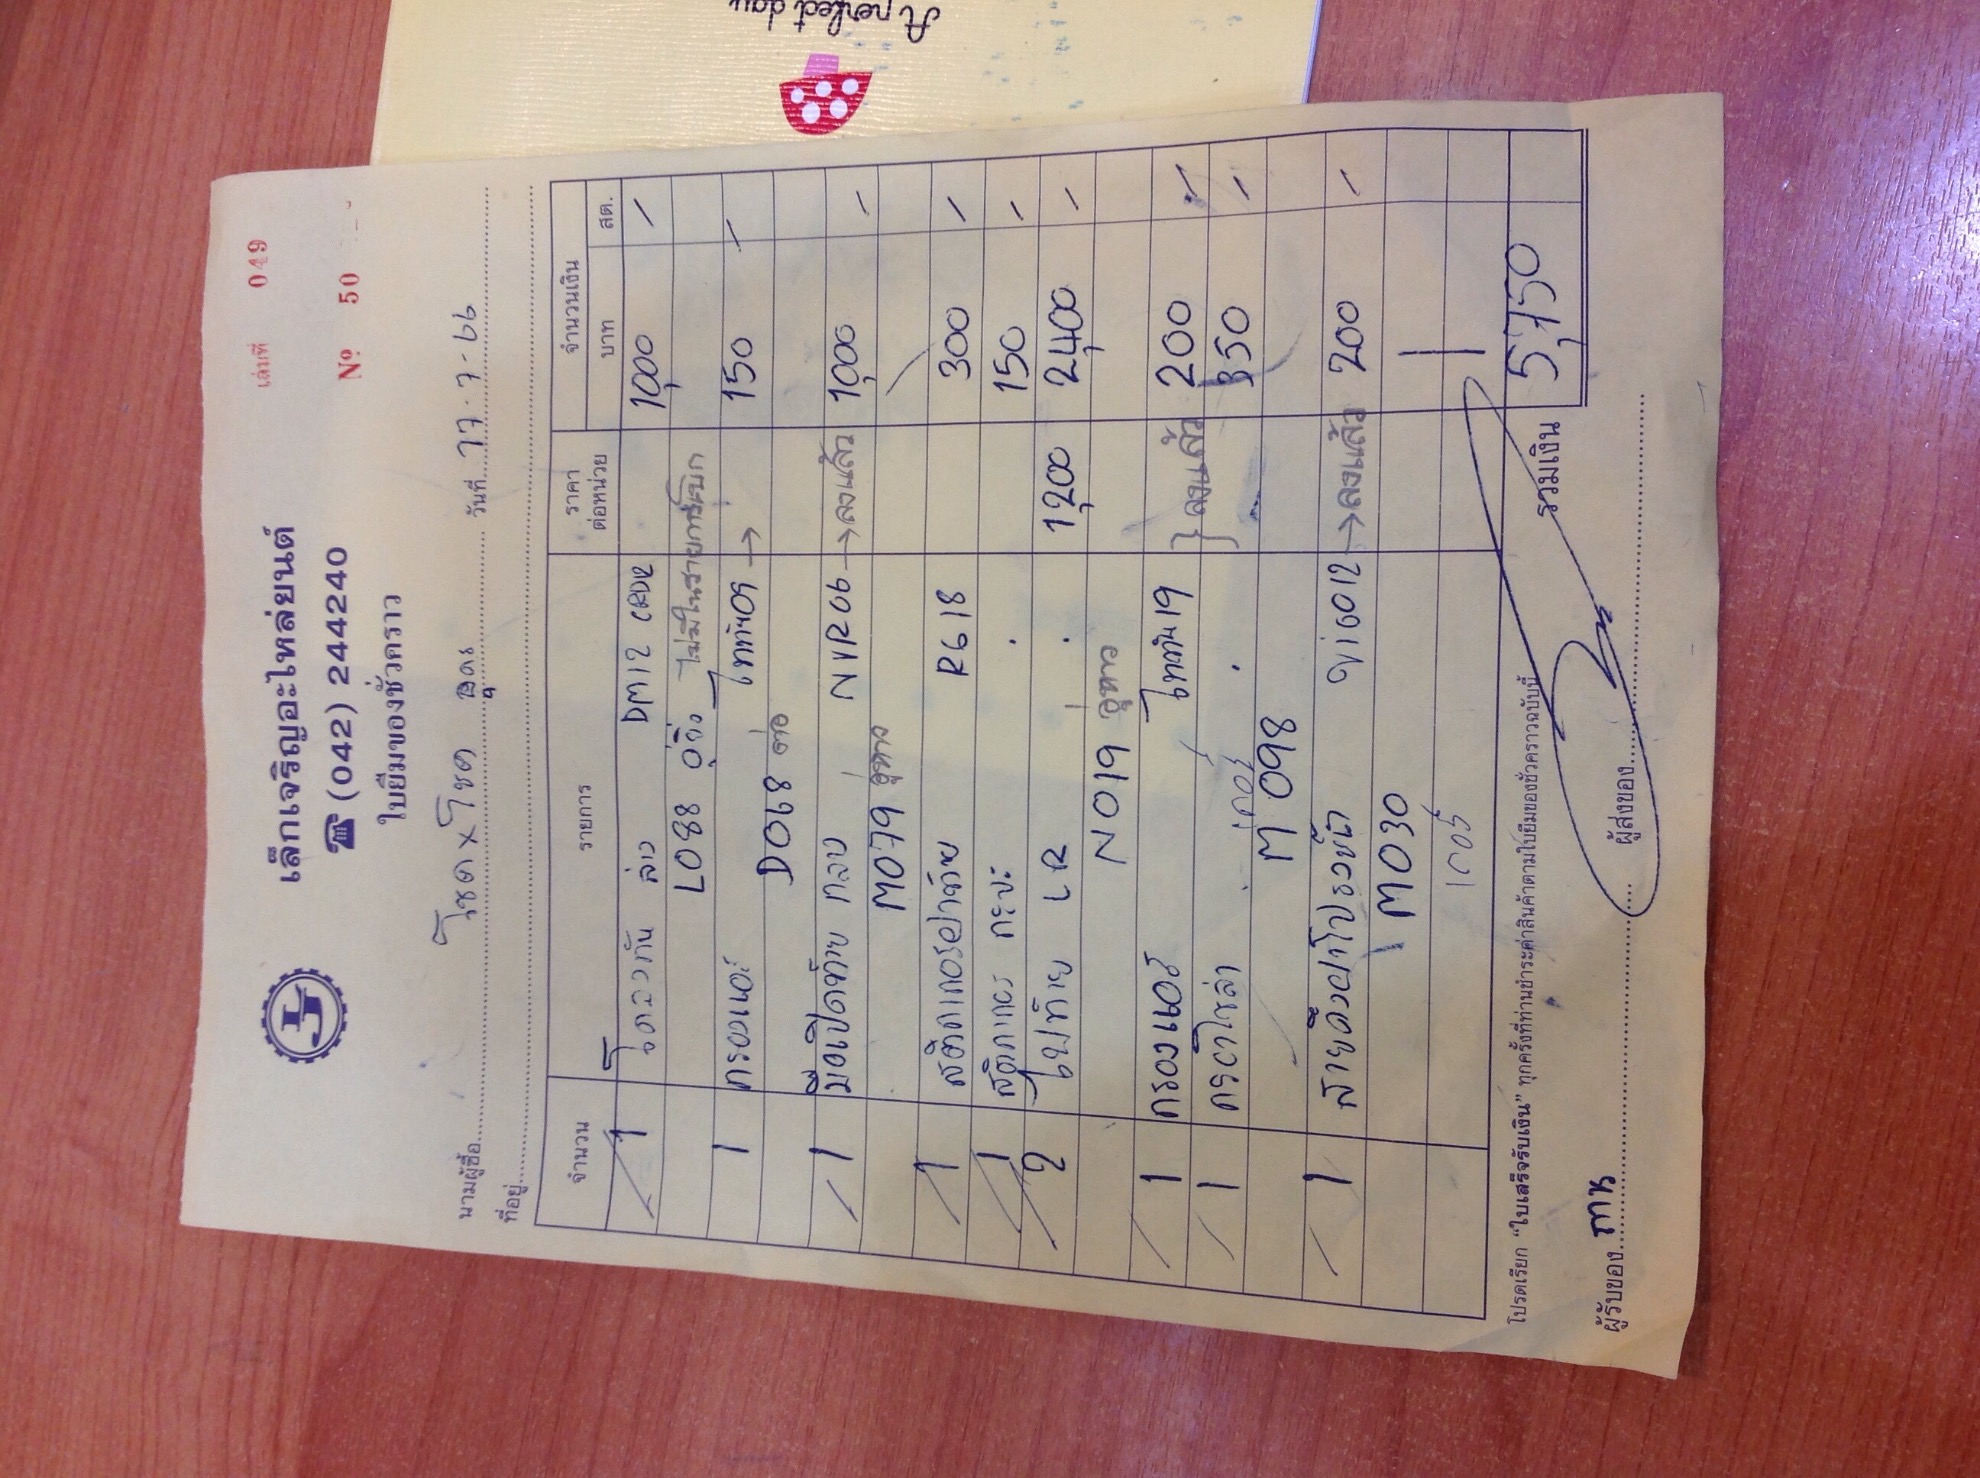 A perfect day
เล่มที่ 049
เล็กเจริญอะไหล่ยนต์
☎ (042) 244240
Nº 50
ใบยืมของชั่วคราว
นามผู้ซื้อ โชค x โชค อุดร วันที่ 17-7-66
ที่อยู่
จำนวน รายการ ราคาต่อหน่วย จำนวนเงิน
บาท สต.
1 โคลงกัน ล่าง DM12 1,000 -
L088 ไม่มีในรายการเบิก
1 กรองแอร์ ไททัน09 → 150 -
D068
1 มือเปิดท้าย กลาง NVR06 → ลงแล้ว 1,000 -
M079
1 สติกเกอร์ฝาท้าย R618 300 -
1 สติกเกอร์ กระบะ . 150 -
2 ไฟท้าย LR . 1,200 2,400 -
N019
1 กรองแอร์ ไททัน19 } ลงแล้ว 200 -
1 . 350 -
เก๋ง
M098
1 สายดึงฝากระโปรงหน้า vigo12 → ลงแล้ว 200 -
M030
เก๋ง
รวมเงิน 5,750
โปรดเรียก "ใบเสร็จรับเงิน" ทุกครั้งที่ท่านชำระค่าสินค้าตามใบยืมของชั่วคราวฉบับนี้
ผู้รับของ ผู้ส่งของ